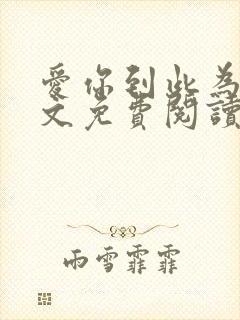 愛你到此為
文免費閱讀
雨雪霏霏